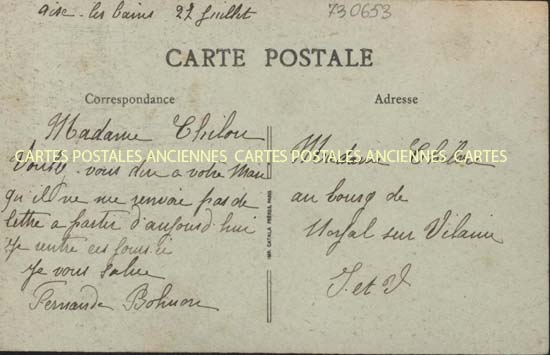 aise-les bains 27 Juillet
730653
CARTE POSTALE
Correspondance
Madame Thelou
vous dire a votre Mari
qu'il ne me renvoie pas de
lettre a partir d'aujourd'hui
Je rentre ces jours-ci
Je vous salue
Fernande
Adresse
Madame
au bourg de
Noyal sur Vilaine
I. et V
IMP. CATALA FRÈRES, PARIS
CARTES POSTALES ANCIENNES CARTES POSTALES ANCIENNES CARTES